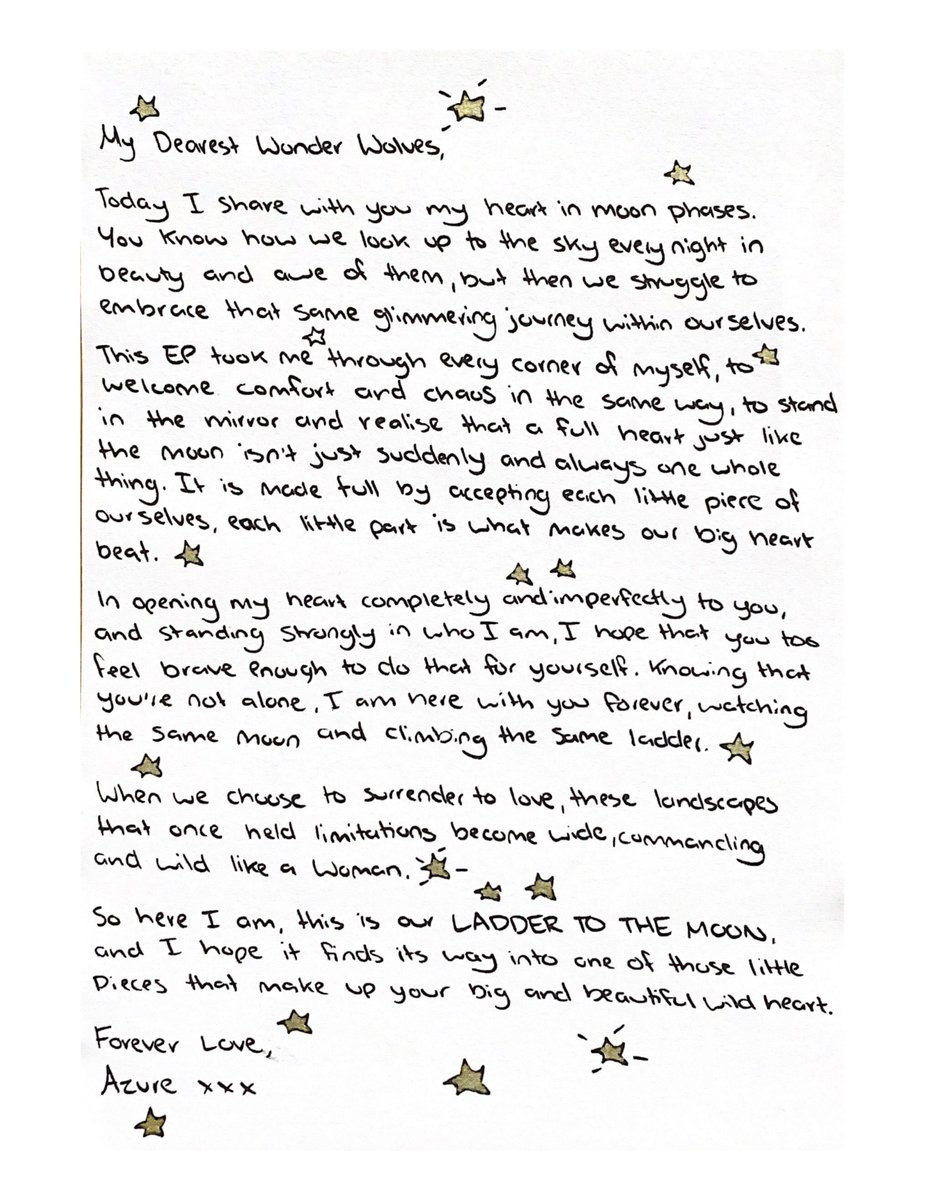 My Dearest Wonder Wolves,
Today I share with you my heart in moon phases.
You know how we look up to the sky every night in
beauty and awe of them, but then we struggle to
embrace that same glimmering journey within ourselves.
This EP took me through every corner of myself, to
welcome comfort and chaos in the same way, to stand
in the mirror and realise that a full heart just like
the moon isn't just suddenly and always one whole
thing. It is made full by accepting each little piece of
ourselves, each little part is what makes our big heart
beat.
In opening my heart completely and imperfectly to you,
and standing strongly in who I am, I hope that you too
feel brave enough to do that for yourself. Knowing that
you're not alone, I am here with you forever, watching
the same moon and climbing the same ladder.
When we choose to surrender to love, these landscapes
that once held limitations become wide, commanding
and wild like a Woman.
So here I am, this is our LADDER TO THE MOON,
and I hope it finds its way into one of those little
pieces that make up your big and beautiful wild heart.
Forever Love,
Azure xxx